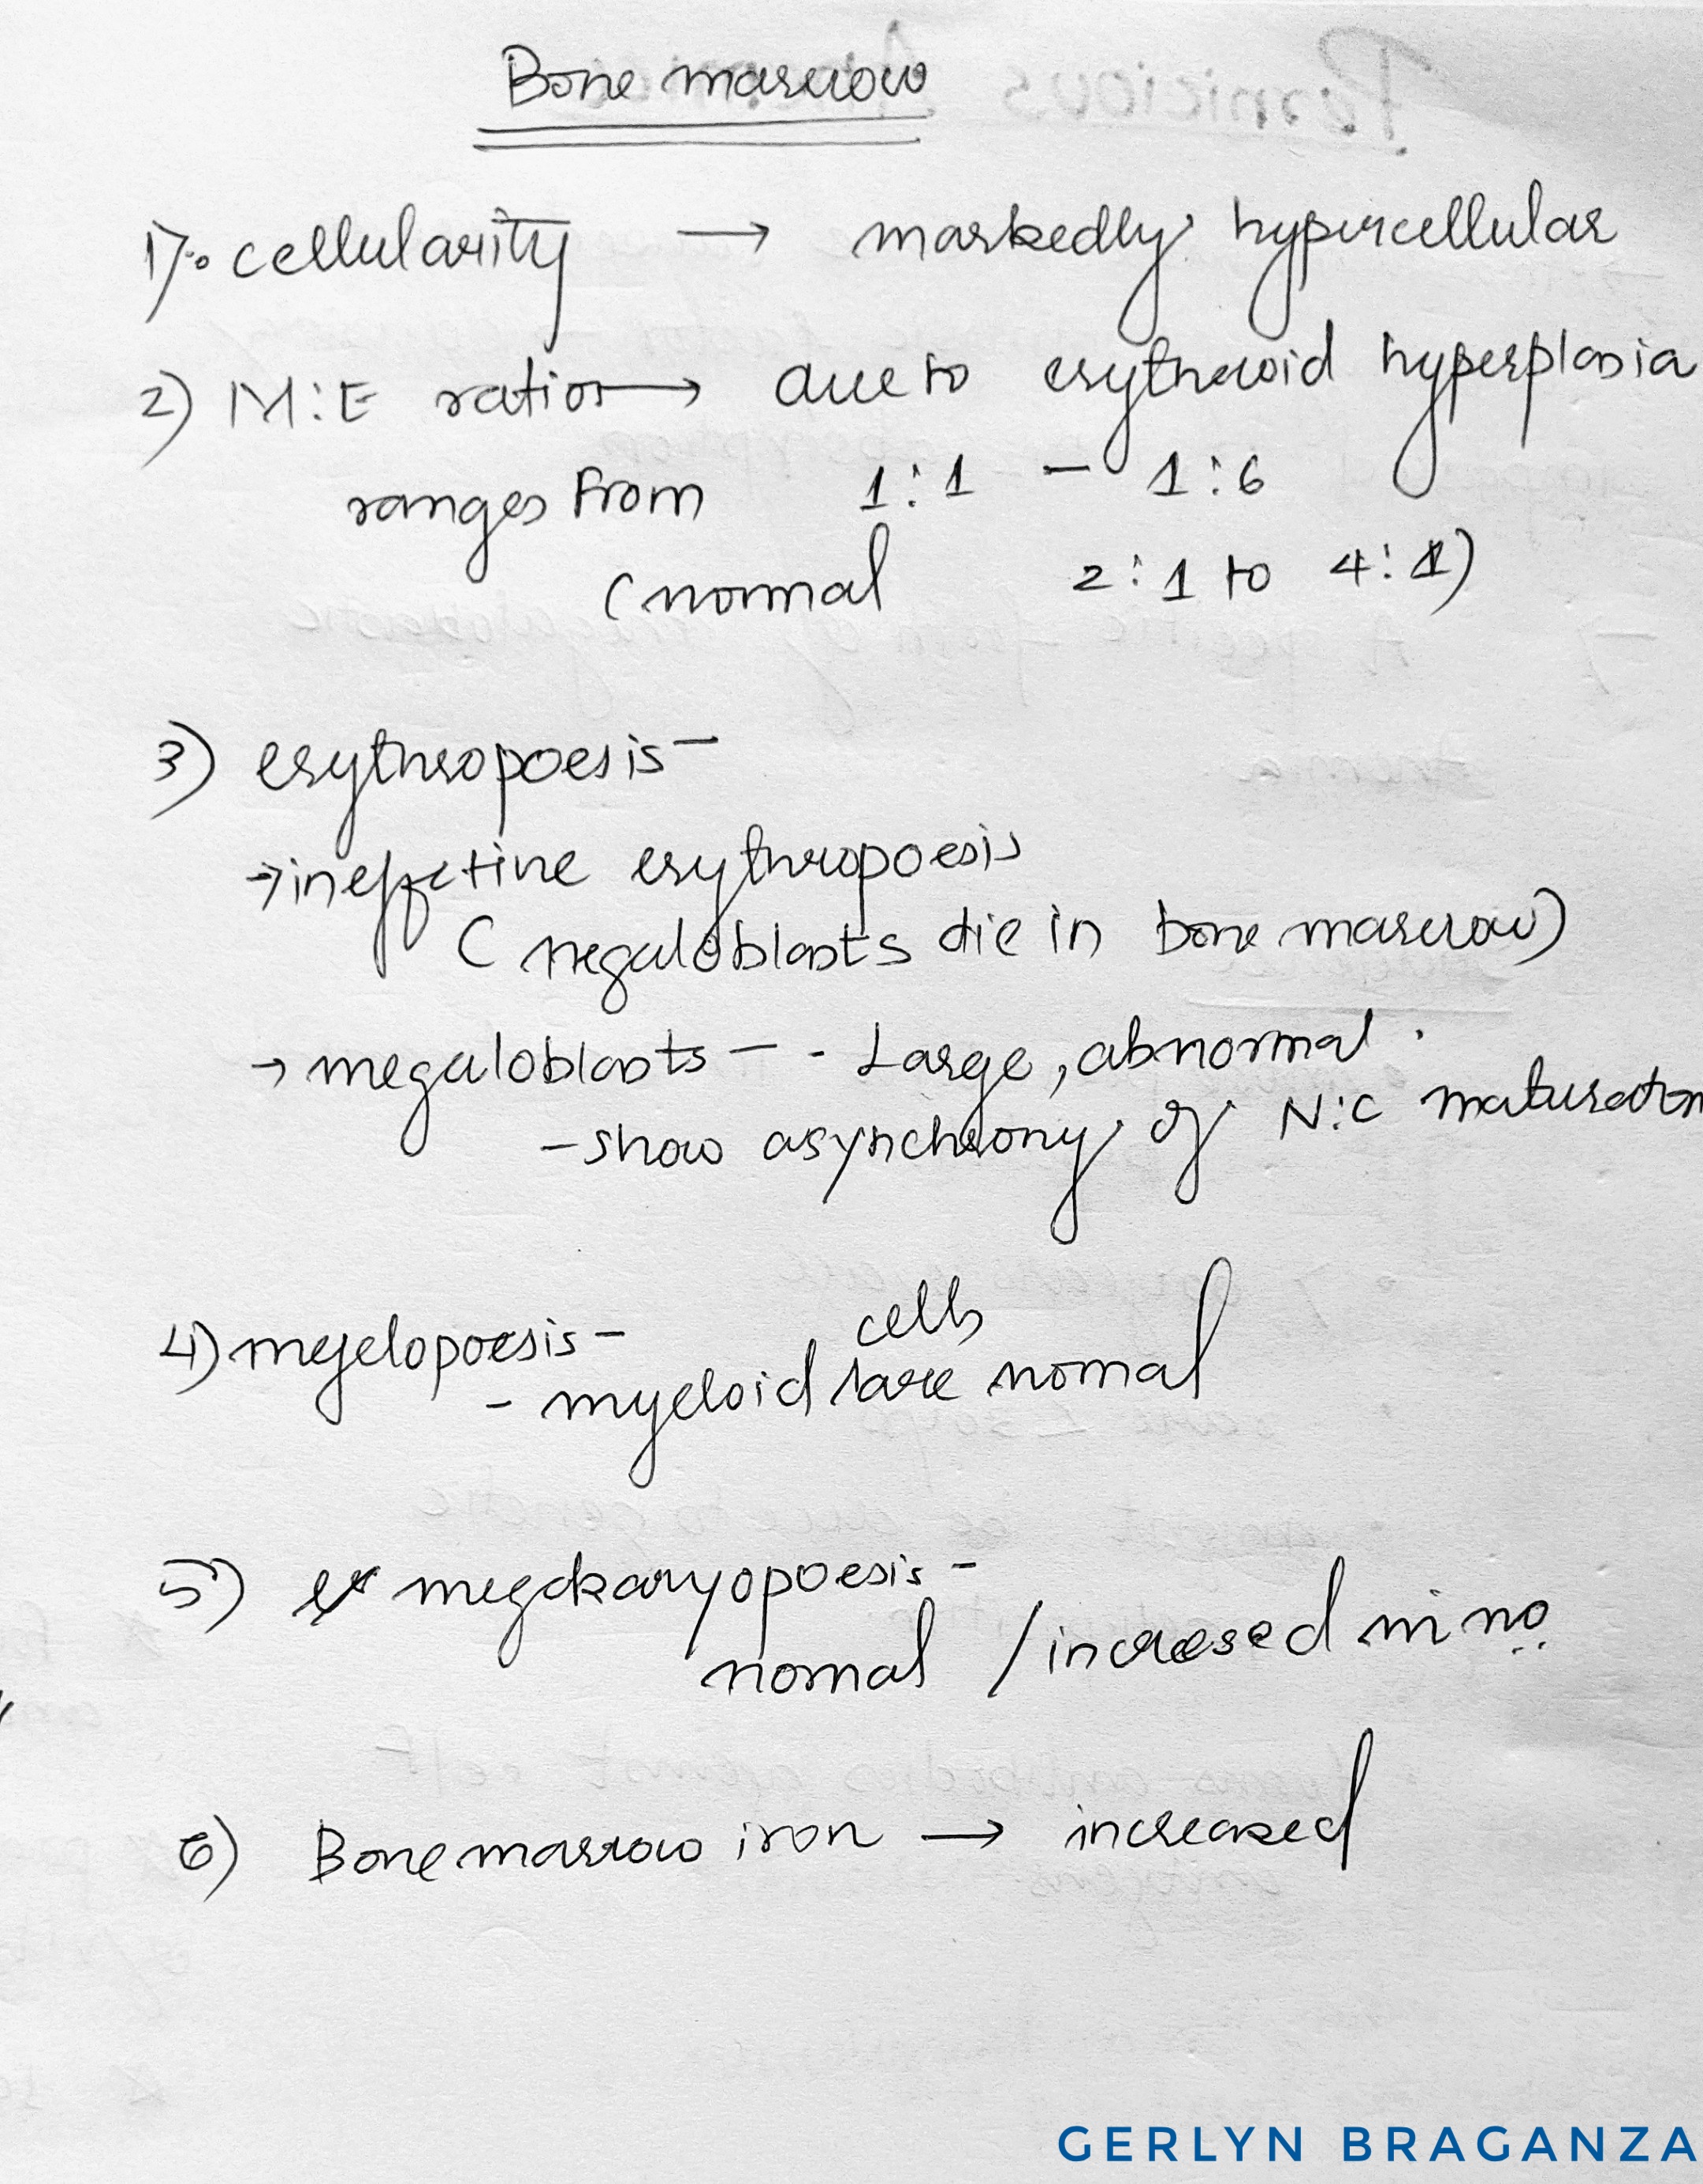 Bone marrow
1). cellularity → markedly hypercellular
2) M:E ratio → due to erythroid hyperplasia
ranges from 1:1 – 1:6
(normal 2:1 to 4:1)
3) erythropoesis –
→ ineffective erythropoesis
( megaloblasts die in bone marrow)
→ megaloblasts – - Large, abnormal
- show asynchrony of N:C maturation
4) myelopoesis –
cells
- myeloid are nomal
5) megakaryopoesis -
nomal / incresed in no
6) Bone marrow iron → increased
GERLYN BRAGANZA